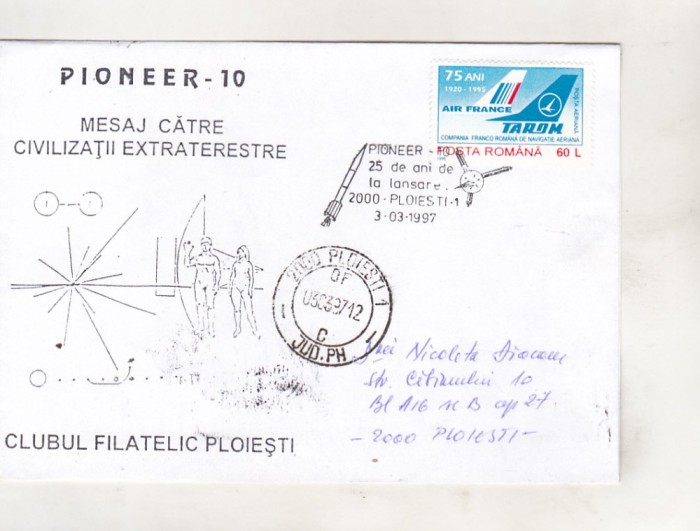 PIONEER-10
MESAJ CĂTRE
CIVILIZAȚII EXTRATERESTRE
75 ANI
1920 - 1995
AIR FRANCE
TAROM
POȘTA AERIANĂ
COMPANIA FRANCO ROMÂNĂ DE NAVIGAȚIE AERIANĂ
POSTA ROMÂNĂ 60 L
PIONEER - 10
25 de ani de
la lansare
2000 - PLOIESTI-1
3-03-1997
2000 PLOIESTI 1
OF
C
JUD. PH
Nicoleta
str. 10
Bl A16 sc B ap 27
- 2000 PLOIESTI -
CLUBUL FILATELIC PLOIEȘTI